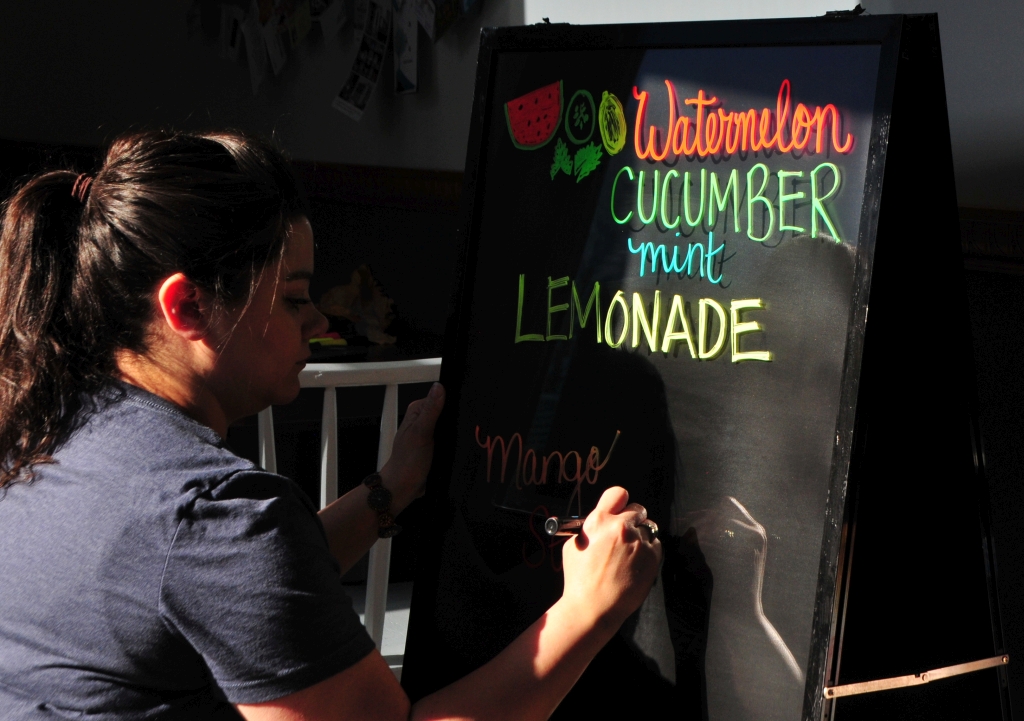 Watermelon
CUCUMBER
mint
LEMONADE
Mango